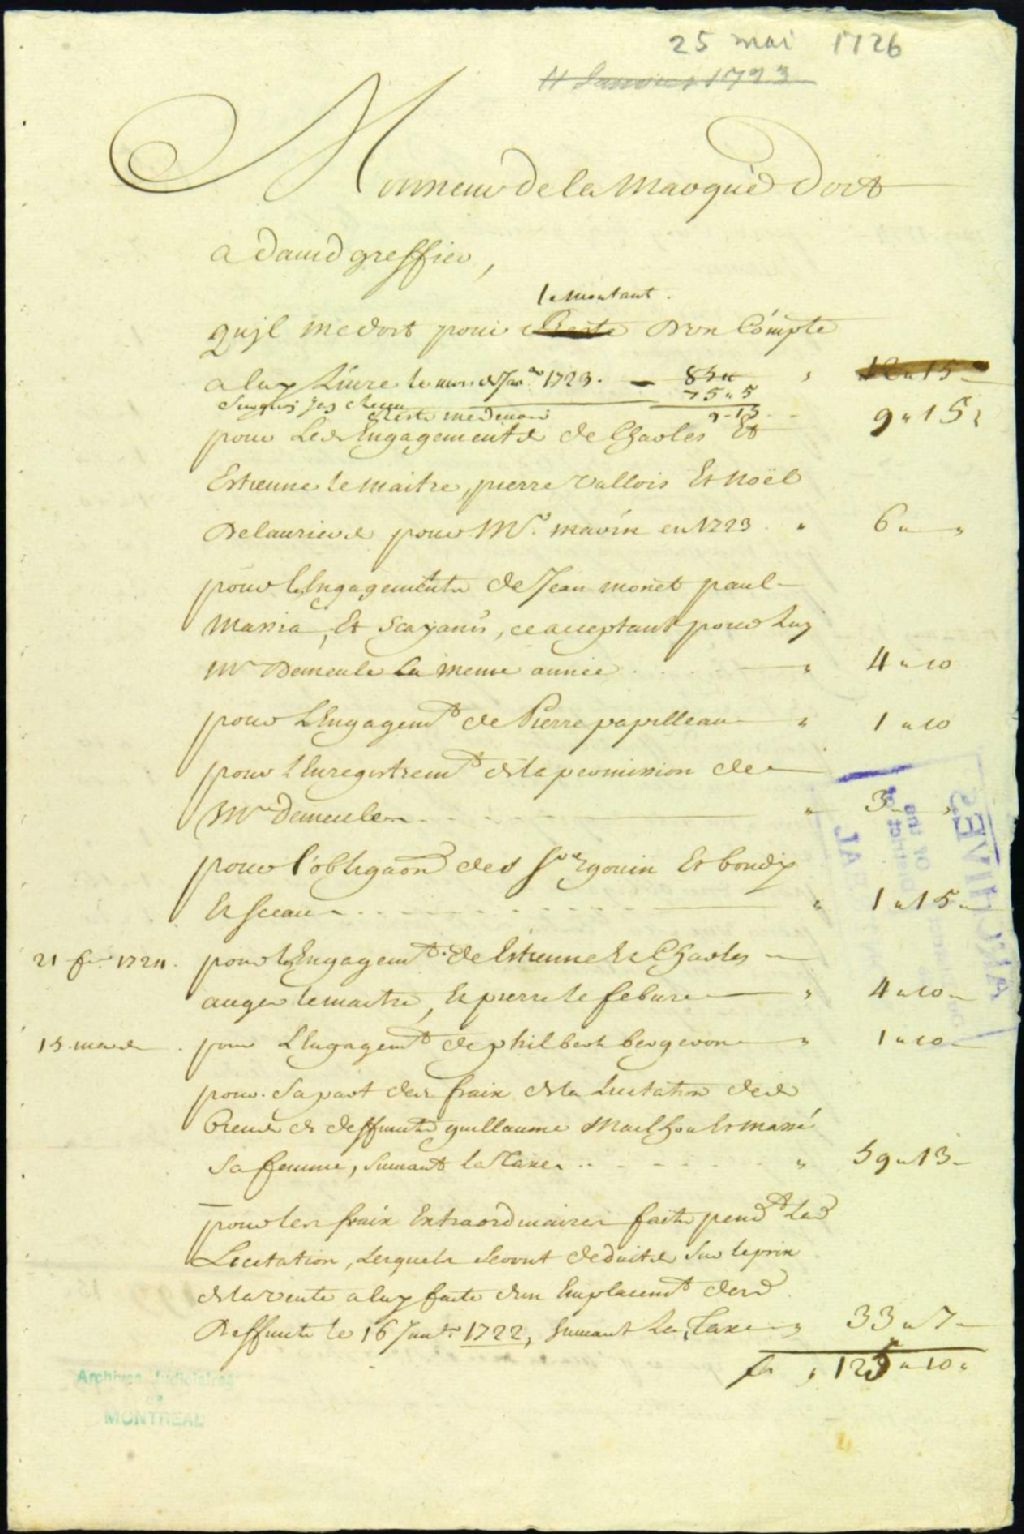 25 mai 1726
11 Janvier 1723
Monsieur de la Marque Doit
a david greffier,
le montant
quil me doit pour Reste d'un Compte
a luy livré le 1723. 85 "
12 " 15
75 " 5
reste me devant 9 - 15
9 " 15 "
pour Les Engagements de Charles Et
Estienne le maitre, pierre vallois Et Noël
Delaurier pour Mr. marin en 1723 " 6 " "
pour les Engagements de Jean monet paul
Massia, Et Scayanis, ce acceptant pour Luy
Mr Demeule La meme année " 4 " 10
pour L'Engagemt de Pierre papilleau " 1 " 10
pour L'Enregistremt de la permission de
Mr Demeule " 3 "
pour l'obligaon des Srs gouin Et boudy
Et sceau " 1 " 15
21 fer 1724. pour l'Engagemt de Estienne Et Charles
auger lemaitre, Et pierre le febure " 4 " 10
15 pour L'Engagemt de philbert bergeron " 1 " 10
pour sa part des fraix de la Licitation des
biens de deffunts guillaume Malhou Et marié
sa femme, suivant la Taxe " 59 " 13
pour les fraix Extraordinaires faits pendt Lad
Licitation, lesquels seront deduits sur le prix
de la vente a luy faite d'un Emplacemt desd
Deffunts le 16 Janer 1722, suivant La Taxe " 33 " 7
125 " 10 "
Archives Judiciaires
de
MONTREAL
ARCHIVES